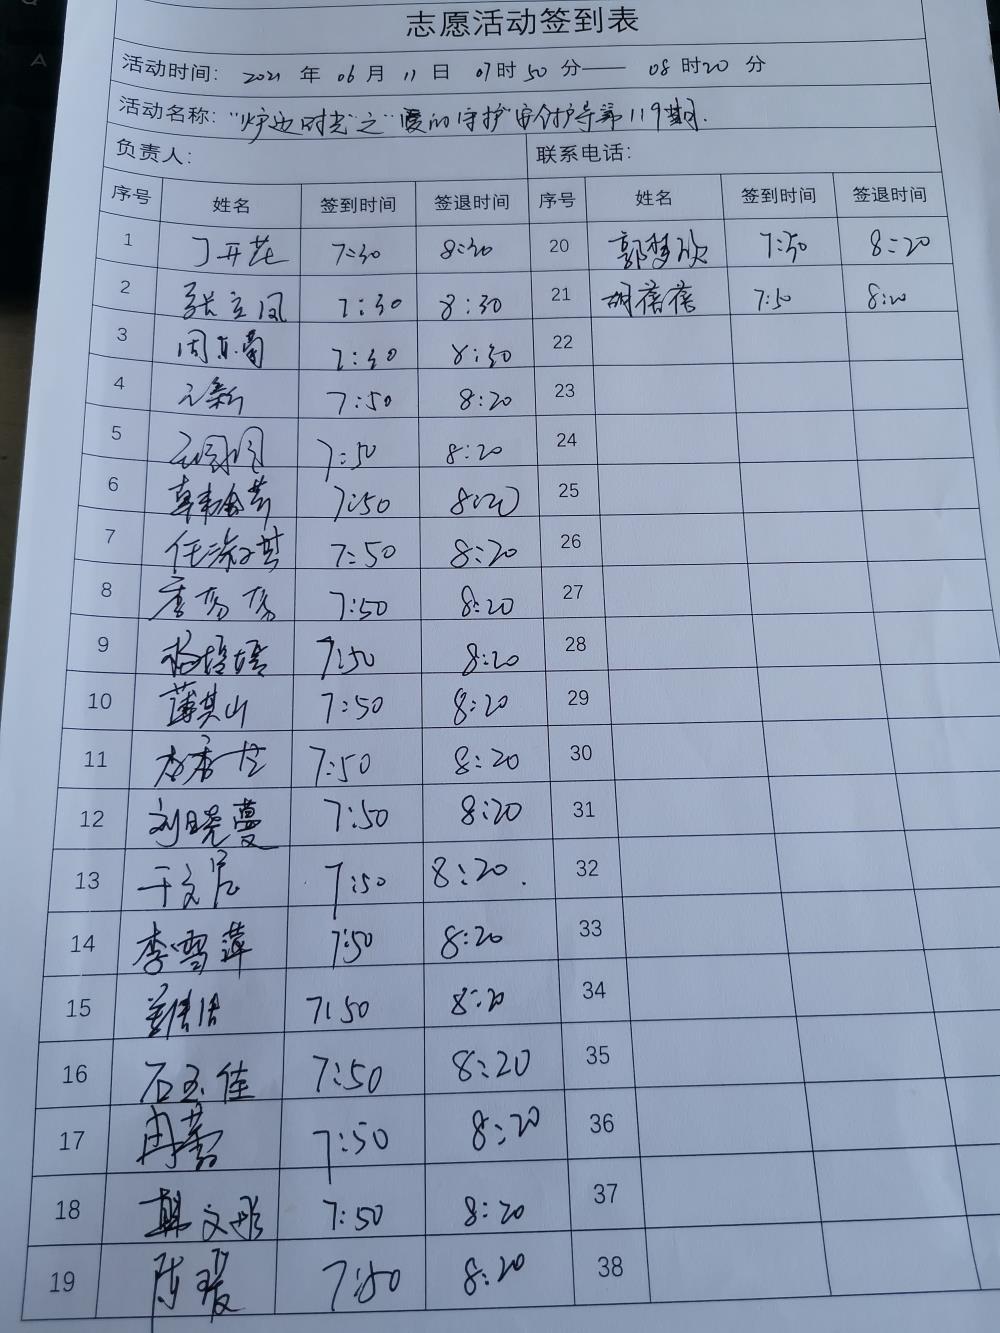 志愿活动签到表
活动时间: 2021 年 06 月 11 日 07时50分—— 08时20分
活动名称: "炉边时光"之"爱的守护"安全护导第119期.
负责人: 联系电话:
序号 姓名 签到时间 签退时间 序号 姓名 签到时间 签退时间
1 丁开花 7:30 8:30 20 郭梦欣 7:50 8:20
2 张立凤 7:30 8:30 21 胡蓓蓓 7:50 8:20
3 7:30 8:30 22
4 7:50 8:20 23
5 7:50 8:20 24
6 7:50 8:20 25
7 7:50 8:20 26
8 7:50 8:20 27
9 杨培培 7:50 8:20 28
10 薄其山 7:50 8:20 29
11 7:50 8:20 30
12 刘晓蔓 7:50 8:20 31
13 于文 7:50 8:20. 32
14 李雪萍 7:50 8:20 33
15 姜倩倩 7:50 8:20 34
16 石玉佳 7:50 8:20 35
17 冉蕾 7:50 8:20 36
18 韩文彤 7:50 8:20 37
19 陈瑷 7:50 8:20 38